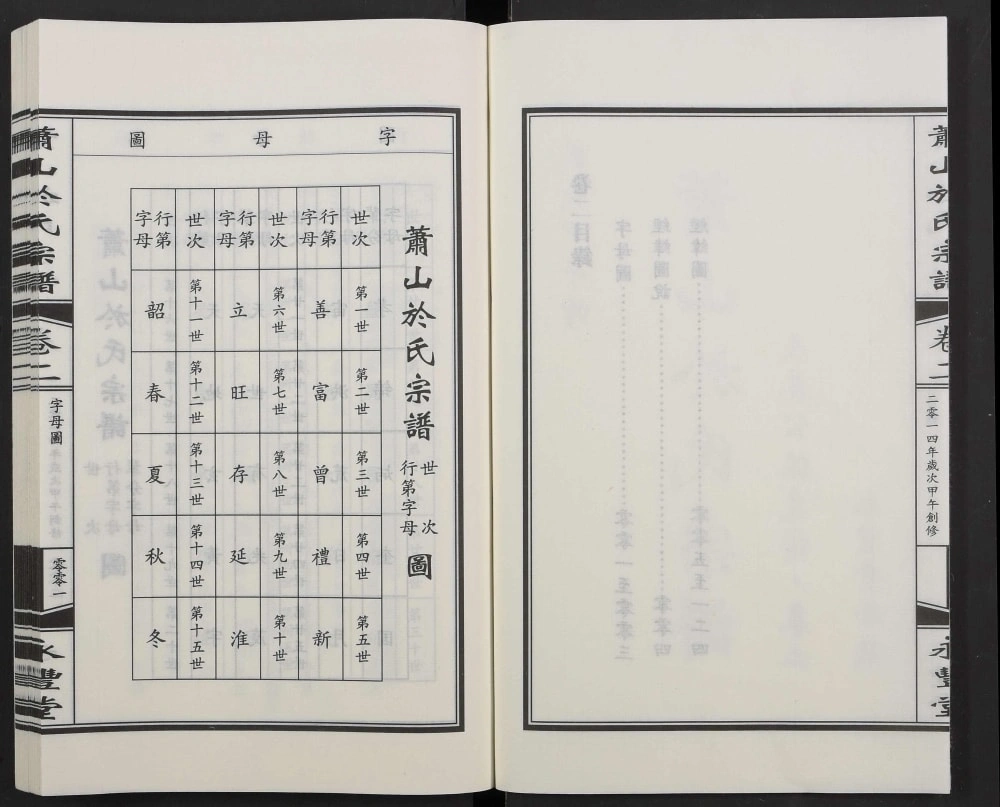 蕭山於氏宗譜
卷二
二零一四年歲次甲午創修
永豐堂
字母圖
蕭山於氏宗譜
世次
行第字母
圖
世次
行第字母
世次
行第字母
世次
行第字母
第一世
善
第六世
立
第十一世
韶
第二世
富
第七世
旺
第十二世
春
第三世
曾
第八世
存
第十三世
夏
第四世
禮
第九世
延
第十四世
秋
第五世
新
第十世
淮
第十五世
冬
蕭山於氏宗譜
卷二
字母圖
零零一
永豐堂